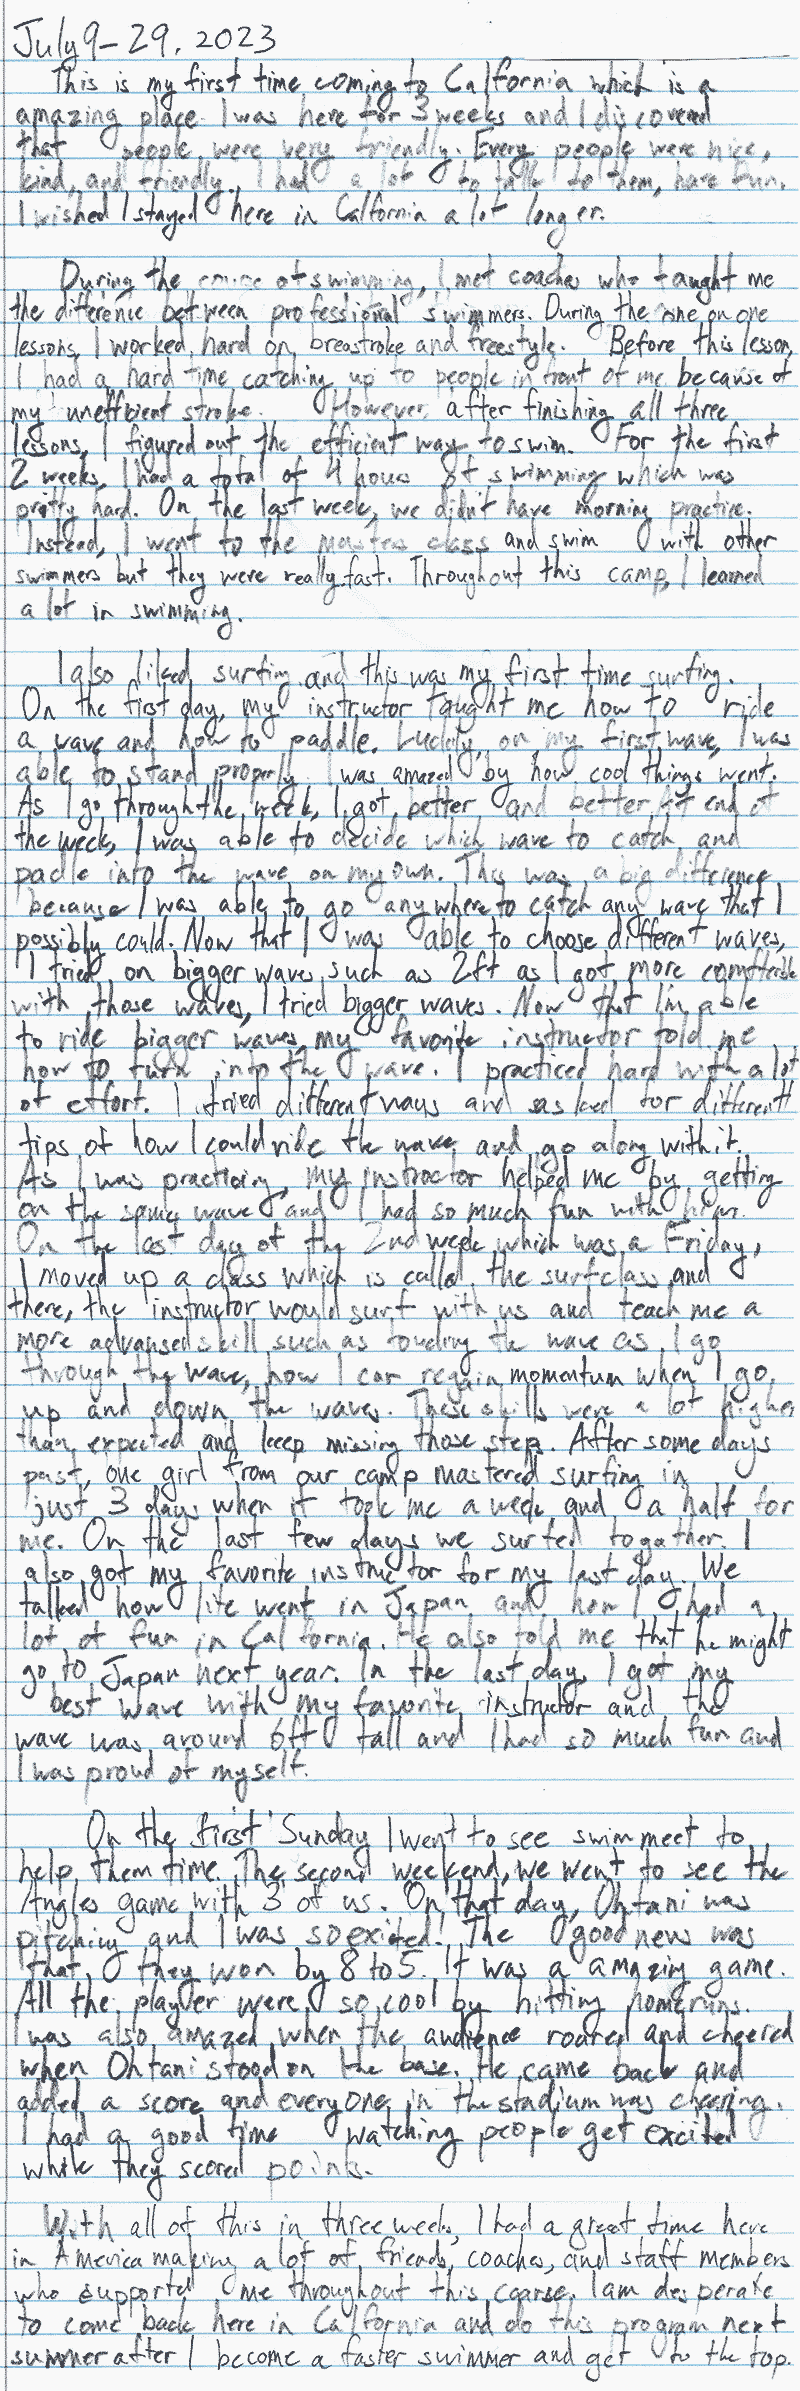 July 9-29, 2023
This is my first time coming to California which is a
amazing place. I was here for 3 weeks and I discovered
that people were very friendly. Every people were nice,
kind, and friendly. I had a lot to talk to them, have fun.
I wished I stayed here in Calfornia a lot longer.
During the course of swimming, I met coaches who taught me
the difference between professional swimmers. During the one on one
lessons, I worked hard on breastroke and freestyle. Before this lesson,
I had a hard time catching up to people in front of me because of
my uneffient stroke. However, after finishing all three
lessons, I figured out the efficient way to swim. For the first
2 weeks, I had a total of 4 hours of swimming which was
pretty hard. On the last week, we didn't have morning practice.
Instead, I went to the masters class and swim with other
swimmers but they were really fast. Throughout this camp, I learned
a lot in swimming.
I also liked surfing and this was my first time surfing.
On the first day, my instructor taught me how to ride
a wave and how to paddle. Luckly, on my first wave, I was
able to stand properly. I was amazed by how cool things went.
As I go through the week, I got better and better. At end of
the week, I was able to decide which wave to catch and
padle into the wave on my own. This was a big difference
because I was able to go anywhere to catch any wave that I
possibly could. Now that I was able to choose different waves,
I tried on bigger waves such as 2ft as I got more
with those waves, I tried bigger waves. Now that I'm able
to ride bigger waves, my favorite instructor told me
how to turn into the wave. I practiced hard with a lot
of effort. I tried different ways and asked for different
tips of how I could ride the wave and go along with it.
As I was practicing, my instructor helped me by getting
on the same wave and I had so much fun with him.
On the last day of the 2nd week which was a Friday,
I moved up a class which is called the surf class and
there, the instructor would surf with us and teach me a
more advansed skill such as touching the wave as I go
through the wave, how I can regain momentum when I go
up and down the waves. These skills were a lot higher
than expected and keep missing those step. After some days
past, one girl from our camp mastered surfing in
just 3 days when it took me a week and a half for
me. On the last few days we surfed together. I
also got my favorite instructor for my last day. We
talked how life went in Japan and how I had a
lot of fun in California. He also told me that he might
go to Japan next year. In the last day, I got my
best wave with my favorite instructor and the
wave was around 6ft tall and I had so much fun and
I was proud of myself.
On the first Sunday I went to see swim meet to
help them time. The second weekend, we went to see the
Angles game with 3 of us. On that day, Ohtani was
pitching and I was so exited! The good news was
that they won by 8 to 5. It was a amazing game.
All the playyer were so cool by hitting homeruns.
I was also amazed when the audience roared and cheered
when Ohtani stood on the base. He came back and
added a score and everyone in the stadium was cheering.
I had a good time watching people get excited
while they scored points.
With all of this in three weeks, I had a great time here
in America making a lot of friends, coaches, and staff members
who supported me throughout this coarse. I am desperate
to come back here in California and do this program next
summer after I become a faster swimmer and get to the top.